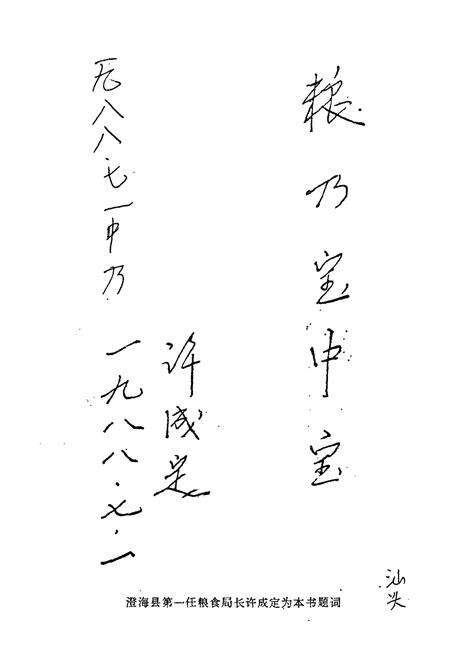 粮乃宝中宝
许成定
一九八八·七·一
一九八八·七·一中乃
澄海县第一任粮食局长许成定为本书题词
汕头